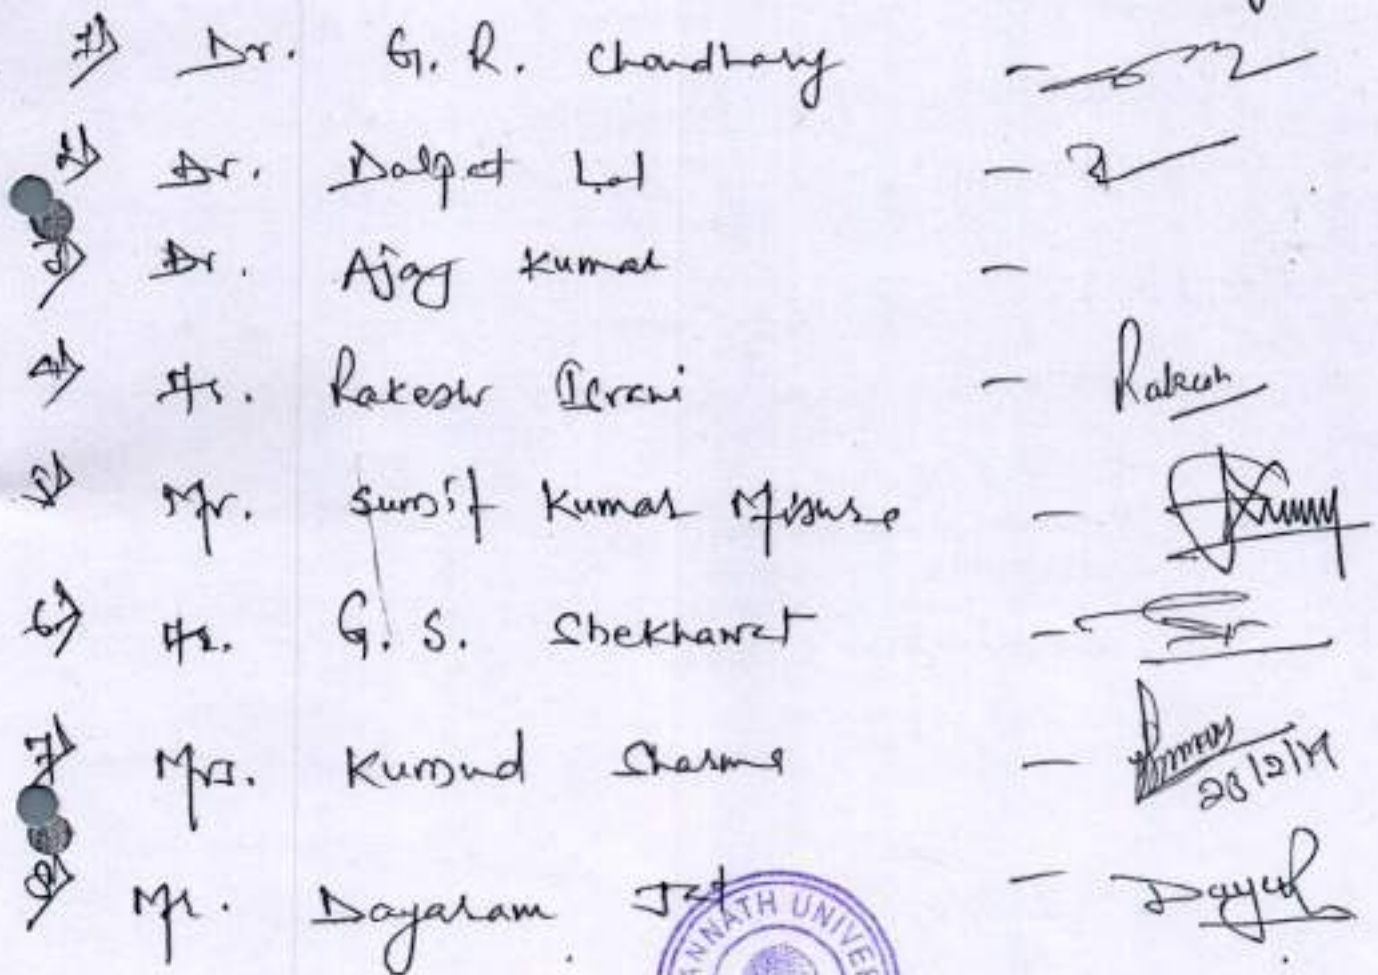 1) Dr. G. R. Choudhary -
2) Dr. Dalpat Lal -
3) Dr. Ajay Kumar -
4) Mr. Rakesh Israni - Rakesh
5) Mr. Sumit Kumar -
6) Mr. G. S. Shekhawat -
7) Mrs. Kumud Sharma -
8) Mr. Dayaram Jat -
ANNATH UNIVER